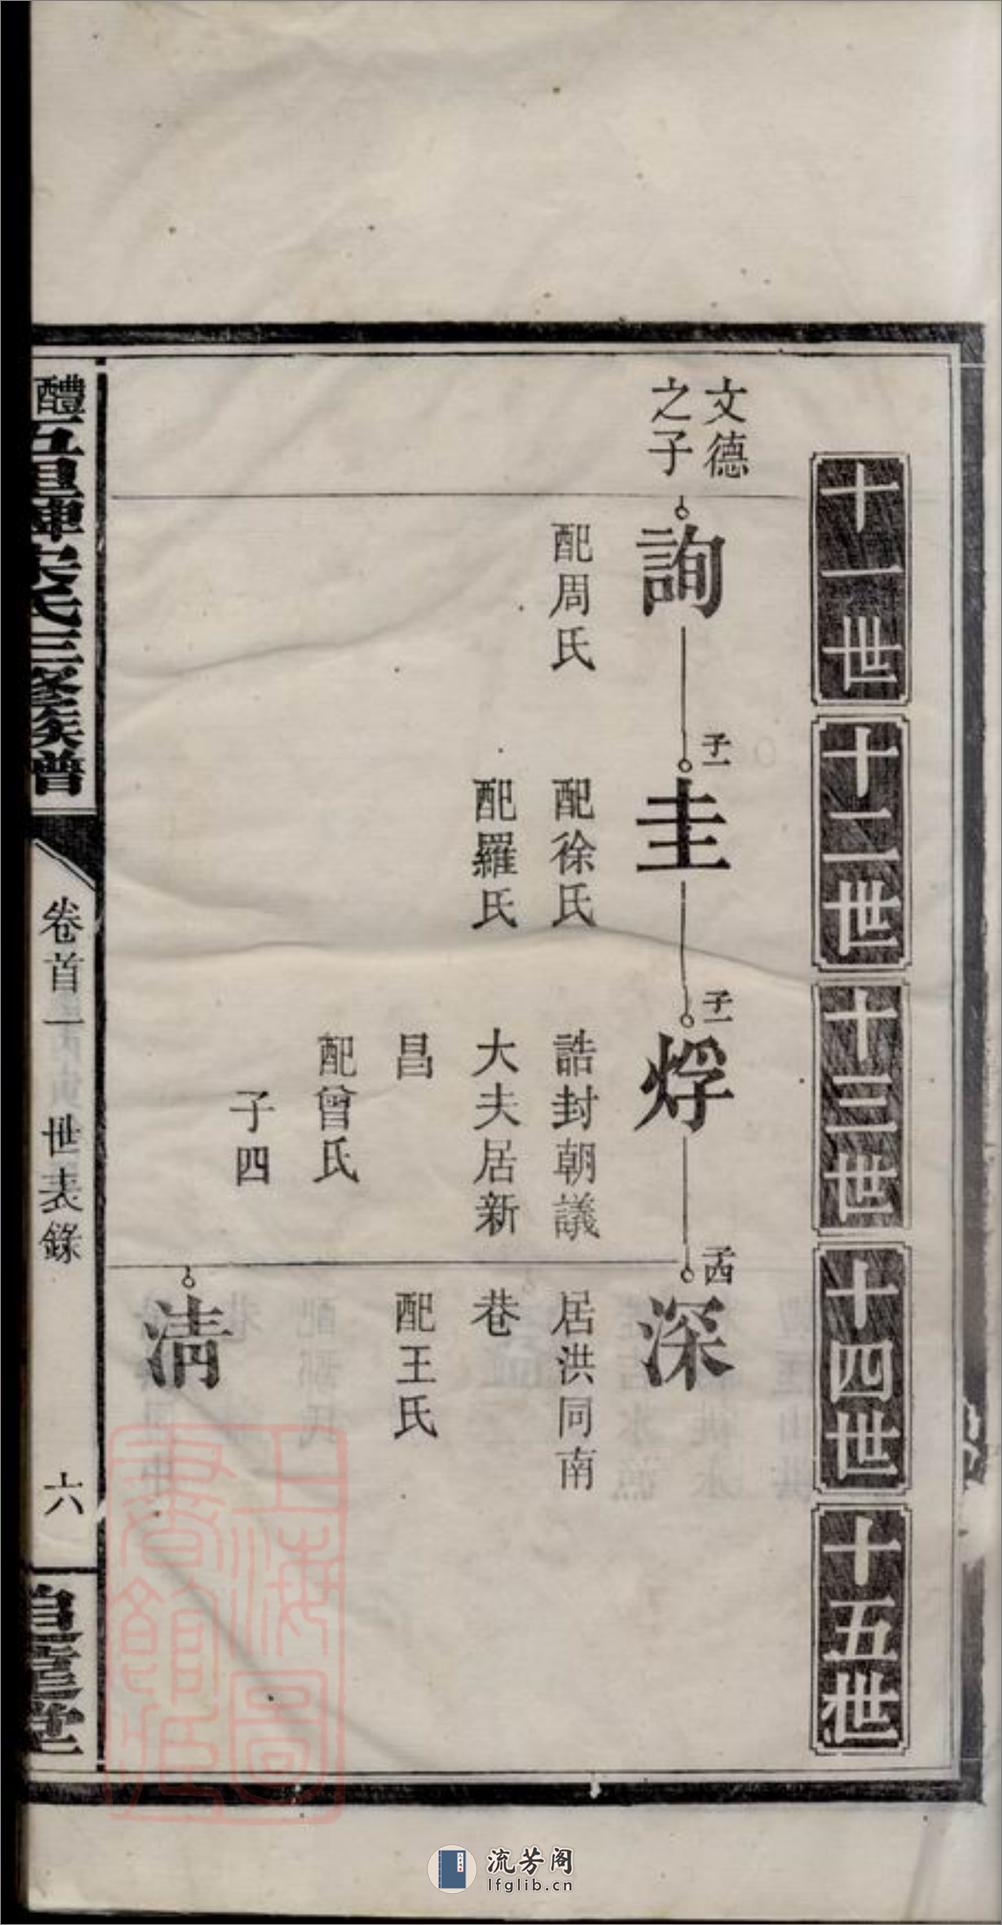 十一世
十二世
十三世
十四世
十五世
文德
之子
詢
配周氏
子一
圭
配徐氏
配羅氏
子一
烰
誥封朝議
大夫居新
昌
配曾氏
子四
子四
深
居洪同南
巷
配王氏
淸
醴五里陳宋氏三修族譜
卷首一 世表錄
六
上海圖
書館藏
流芳阁
lfglib.cn